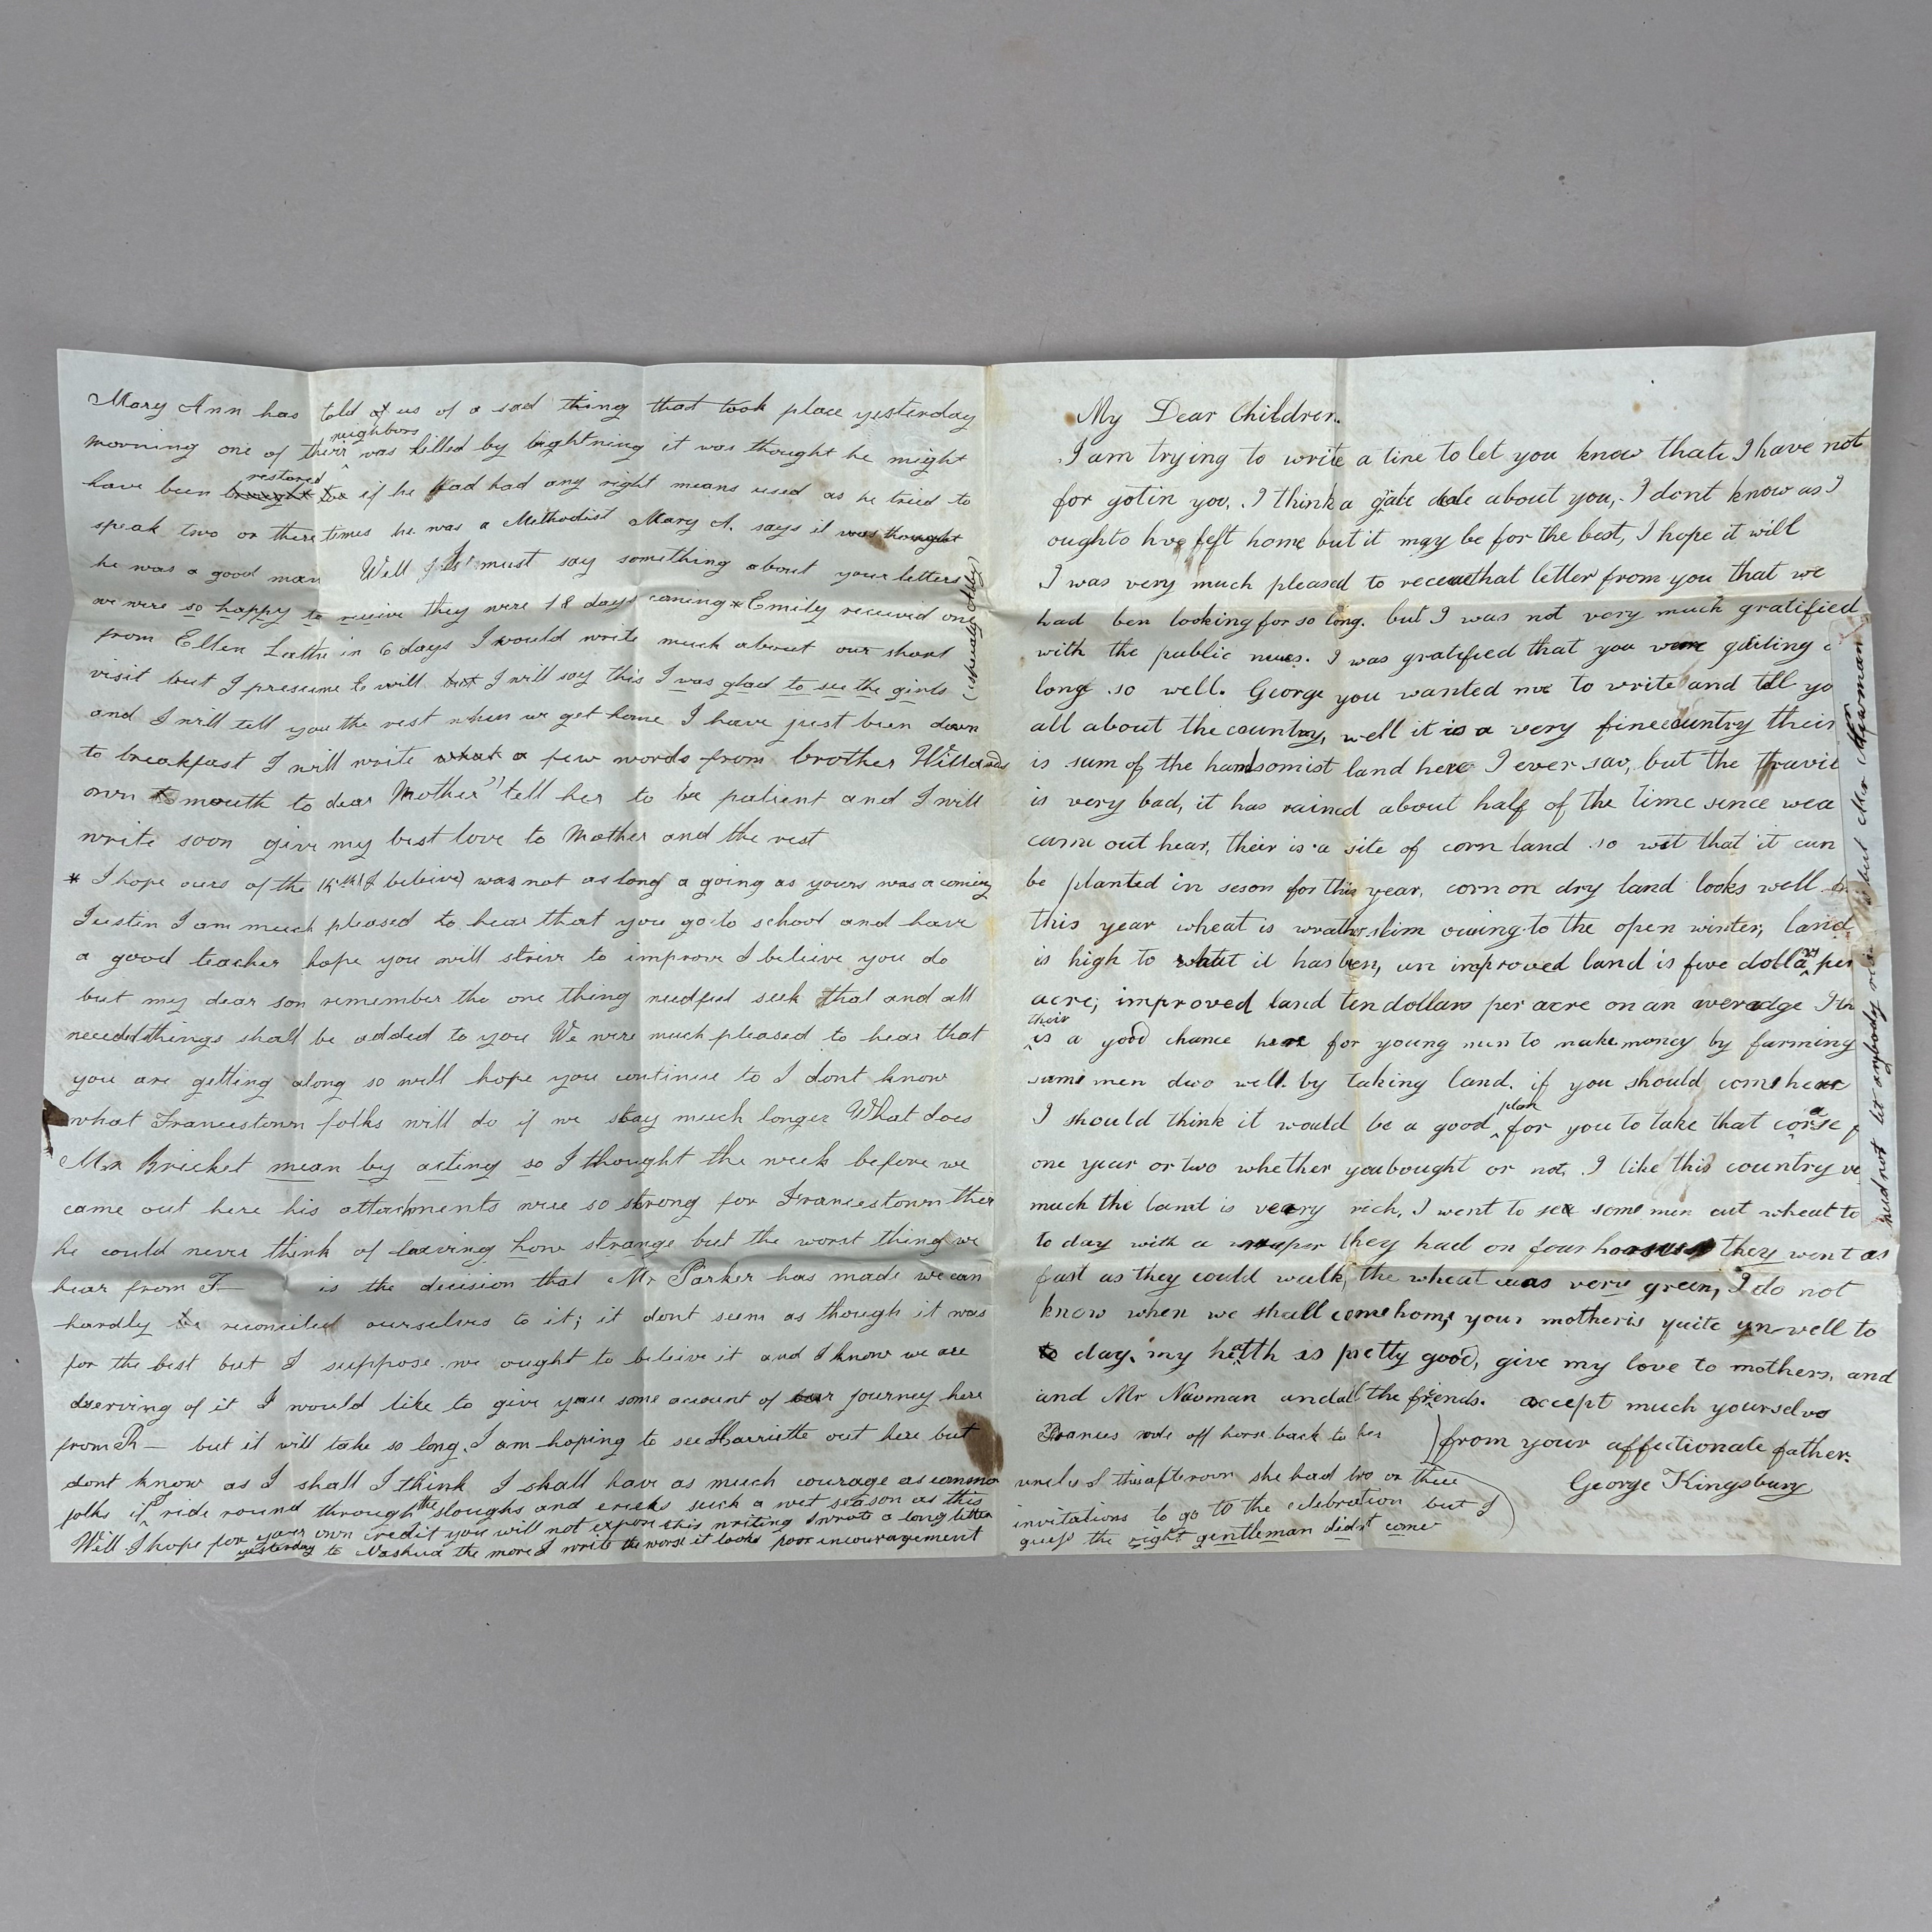 Mary Ann has told of us of a sad thing that took place yesterday
morning one of their neighbors was killed by lightning it was thought he might
have been brought to restored if he had had any right means used as he tried to
speak two or there times he was a Methodist Mary A. says it was thought
he was a good man Well I must say something about your letters
we were so happy to receive they were 18 days coming * Emily received one
from Ellen in 6 days I would write much about our short
visit but I presume E will but I will say this I was glad to see the girls
(especially Abby)
and I will tell you the rest when we get home I have just been down
to breakfast I will write what a few words from brother Willards
own mouth to dear Mother "tell her to be patient and I will
write soon give my best love to Mother and the rest
* I hope ours of the 15th (I beleive) was not as long a going as yours was a coming
I am much pleased to hear that you go to school and have
a good teacher hope you will strive to improve I beleive you do
but my dear son remember the one thing needful seek that and all
needed things shall be added to you We were much pleased to hear that
you are getting along so well hope you continue to I dont know
what Francestown folks will do if we stay much longer What does
Mr Bricket mean by acting so I thought the week before we
came out here his attachments were so strong for Francestown that
he could never think of leaving how strange but the worst thing we
hear from F— is the decision that Mr Parker has made we can
hardly be reconciled ourselves to it; it dont seem as though it was
for the best but I suppose we ought to beleive it and I know we are
deserving of it I would like to give you some account of our journey here
from R— but it will take so long. I am hoping to see Harriette out here but
dont know as I shall I think I shall have as much courage as common
folks if I ride round through the sloughs and creeks such a wet season as this
Will I hope for your own credit you will not expose this writing I wrote a long letter
yesterday to Nashua the more I write the worse it looks poor incouragement
My Dear Children.
I am trying to write a line to let you know that I have not
for gotin you. I think a grate deale about you, I dont know as I
oughto hve left home but it may be for the best, I hope it will
I was very much pleased to receve that letter from you that we
had ben looking for so long. but I was not very much gratified
with the public news. I was gratified that you were giting
long so well. George you wanted me to write and tell yo
all about the country, well it is a very fine country their
is sum of the handsomist land here I ever sav, but the travil
is very bad, it has rained about half of the time sence wea
came out hear, their is a site of corn land so wet that it can
be planted in seson for this year, corn on dry land looks well
this year wheat is wrather slim owing to the open winter, land
is high to what it has ben, un improved land is five dollars per
acre, improved land ten dollars per acre on an averadge I th
their is a good chance here for young men to make money by farming
sume men dwo well by taking land. if you should come hear
I should think it would be a good plan for you to take that corse
one year or two whether you bought or not, I like this country ve
much the land is veary rich, I went to see some men cut wheat to
to day with a reaper they had on four horses they went as
fast as they could walk, the wheat was very green, I do not
know when we shall come home, your mother is quite un well to
to day, my helth is pretty good, give my love to mothers, and
and Mr Nawman and all the friends. accept much yourselvs
from your affectionate father.
George Kingsbury
Frances rode off horse back to her
uncle S this afternoon she had two or three
invitations to go to the celebration but I
guess the right gentleman didnt come
need not let anybody but Newman